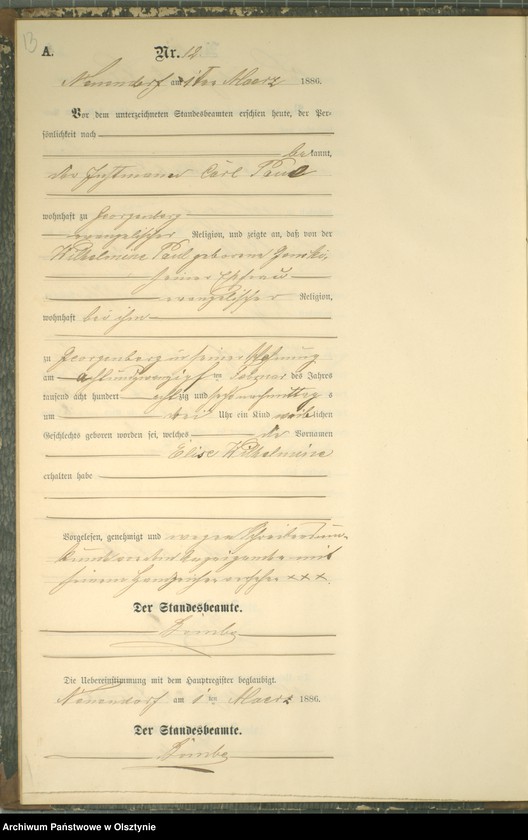 13
A.
Nr. 12.
Neuendorf am 1ten Maerz 1886.
Vor dem unterzeichneten Standesbeamten erschien heute, der Per-
sönlichkeit nach
bekannt,
der Instmann Carl Paul
wohnhaft zu Georgenberg
evangelischer Religion, und zeigte an, daß von der
Wilhelmine Paul geborene
seiner Ehefrau
evangelischer Religion,
wohnhaft bei ihm
zu Georgenberg in seiner Wohnung
am achtundzwanzigsten Februar des Jahres
tausend acht hundert achtzig und sechs nachmittags
um drei Uhr ein Kind weiblichen
Geschlechts geboren worden sei, welches die Vornamen
Elise Wilhelmine
erhalten habe
Vorgelesen, genehmigt und wegen Schreibensun-
kunde von dem Anzeigenden mit
seinem Handzeichen versehen xxx.
Der Standesbeamte.
Die Uebereinstimmung mit dem Hauptregister beglaubigt.
Neuendorf am 1ten Maerz 1886.
Der Standesbeamte.
Archiwum Państwowe w Olsztynie